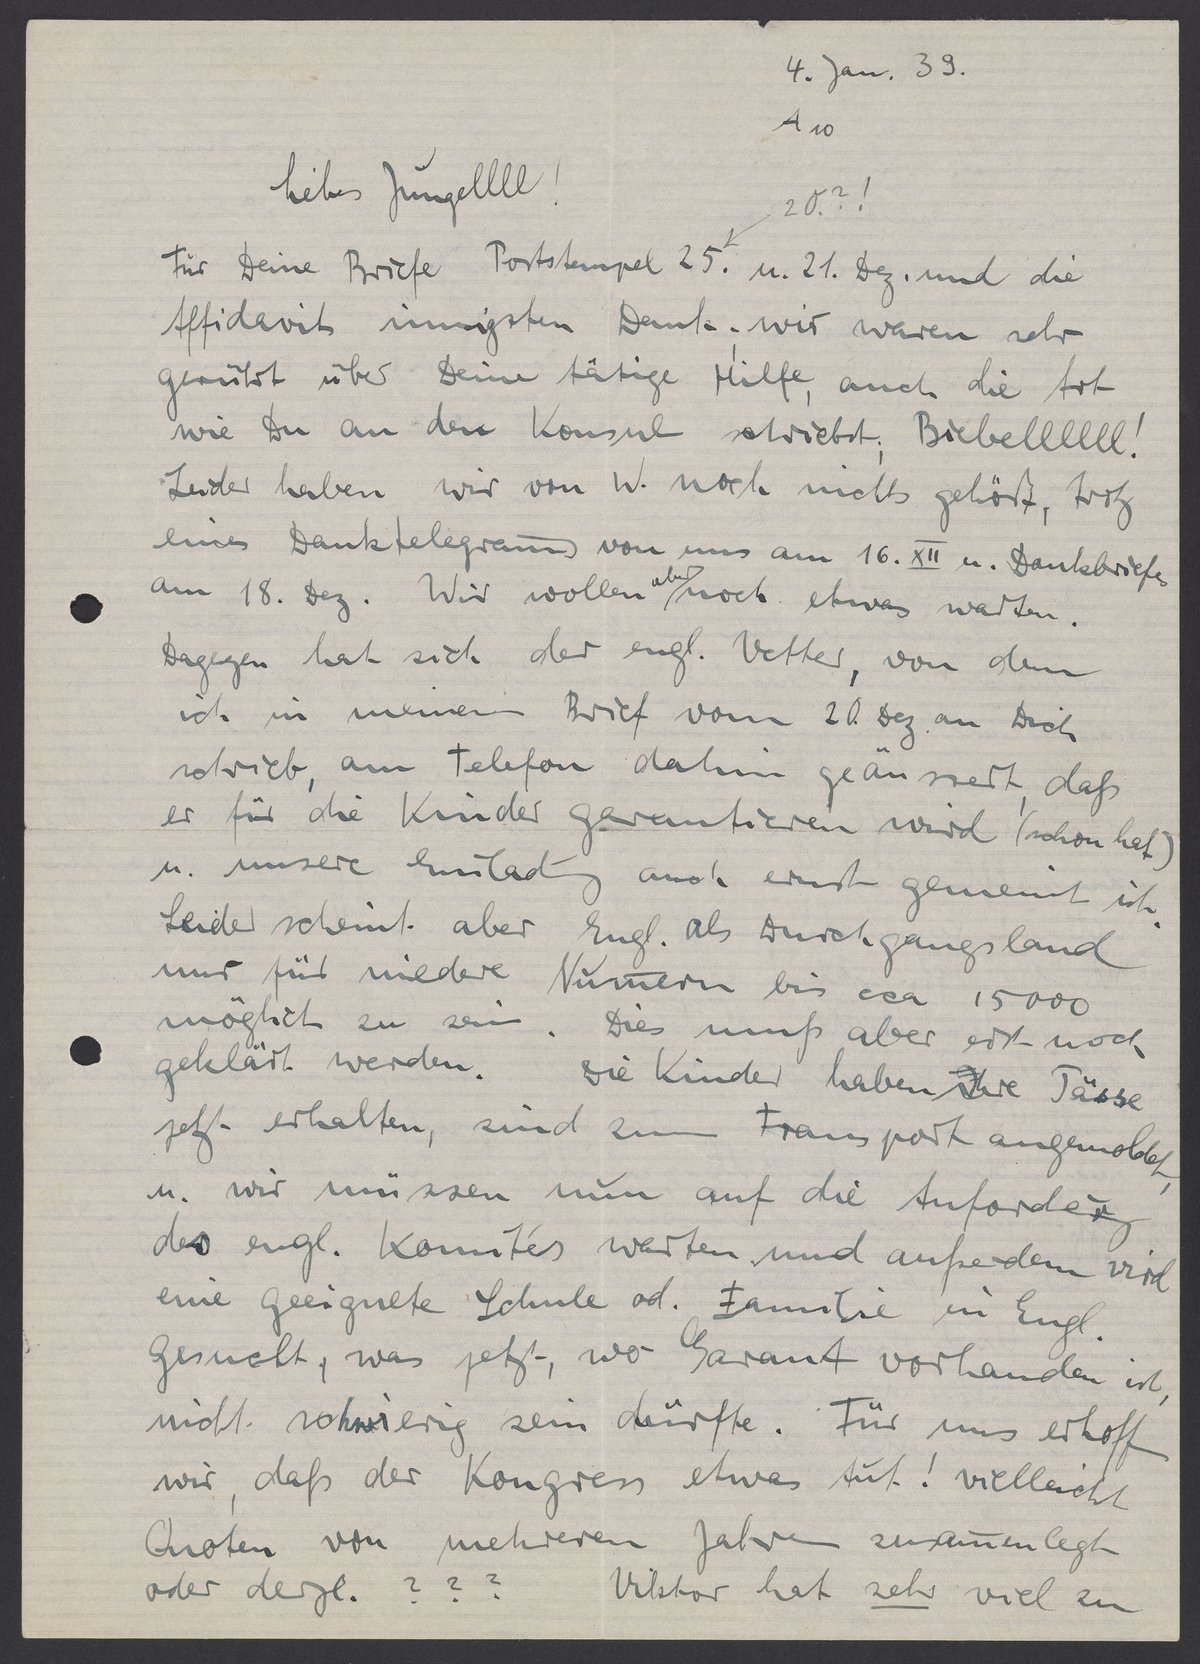 4. Jan. 39.
A 10
Liebes Jungellll!
20.?!
Für Deine Briefe Poststempel 25. u. 21. Dez. und die
Affidavits innigsten Dank; wir waren sehr
gerührt über Deine tätige Hilfe, auch die Art
wie Du an den Konsul schriebst, Biebellllll!
Leider haben wir von W. noch nichts gehört, trotz
eines Danktelegramms von uns am 16. XII u. Dankbriefes
am 18. Dez. Wir wollen aber noch etwas warten.
Dagegen hat sich der engl. Vetter, von dem
ich in meinem Brief vom 20. Dez. an Dich
schrieb, am Telefon dahin geäussert, daß
er für die Kinder garantieren wird (schon hat)
u. unsere Einladg auch ernst gemeint ist.
Leider scheint aber Engl. als Durchgangsland
nur für niedere Num̅ern bis cca 15000
möglich zu sein. Dies muß aber erst noch
geklärt werden. Die Kinder haben ihre Pässe
jetzt erhalten, sind zum Transport angemeldet,
u. wir müssen nun auf die Anforderg
des engl. Komités warten und außerdem wird
eine geeignete Schule od. Familie in Engl.
gesucht, was jetzt, wo Garant vorhanden ist,
nicht schwierig sein dürfte. Für uns erhoffen
wir, daß der Kongress etwas tut! vielleicht
Quoten von mehreren Jahren zusam̅enlegt
oder dergl. ? ? ? Viktor hat sehr viel zu